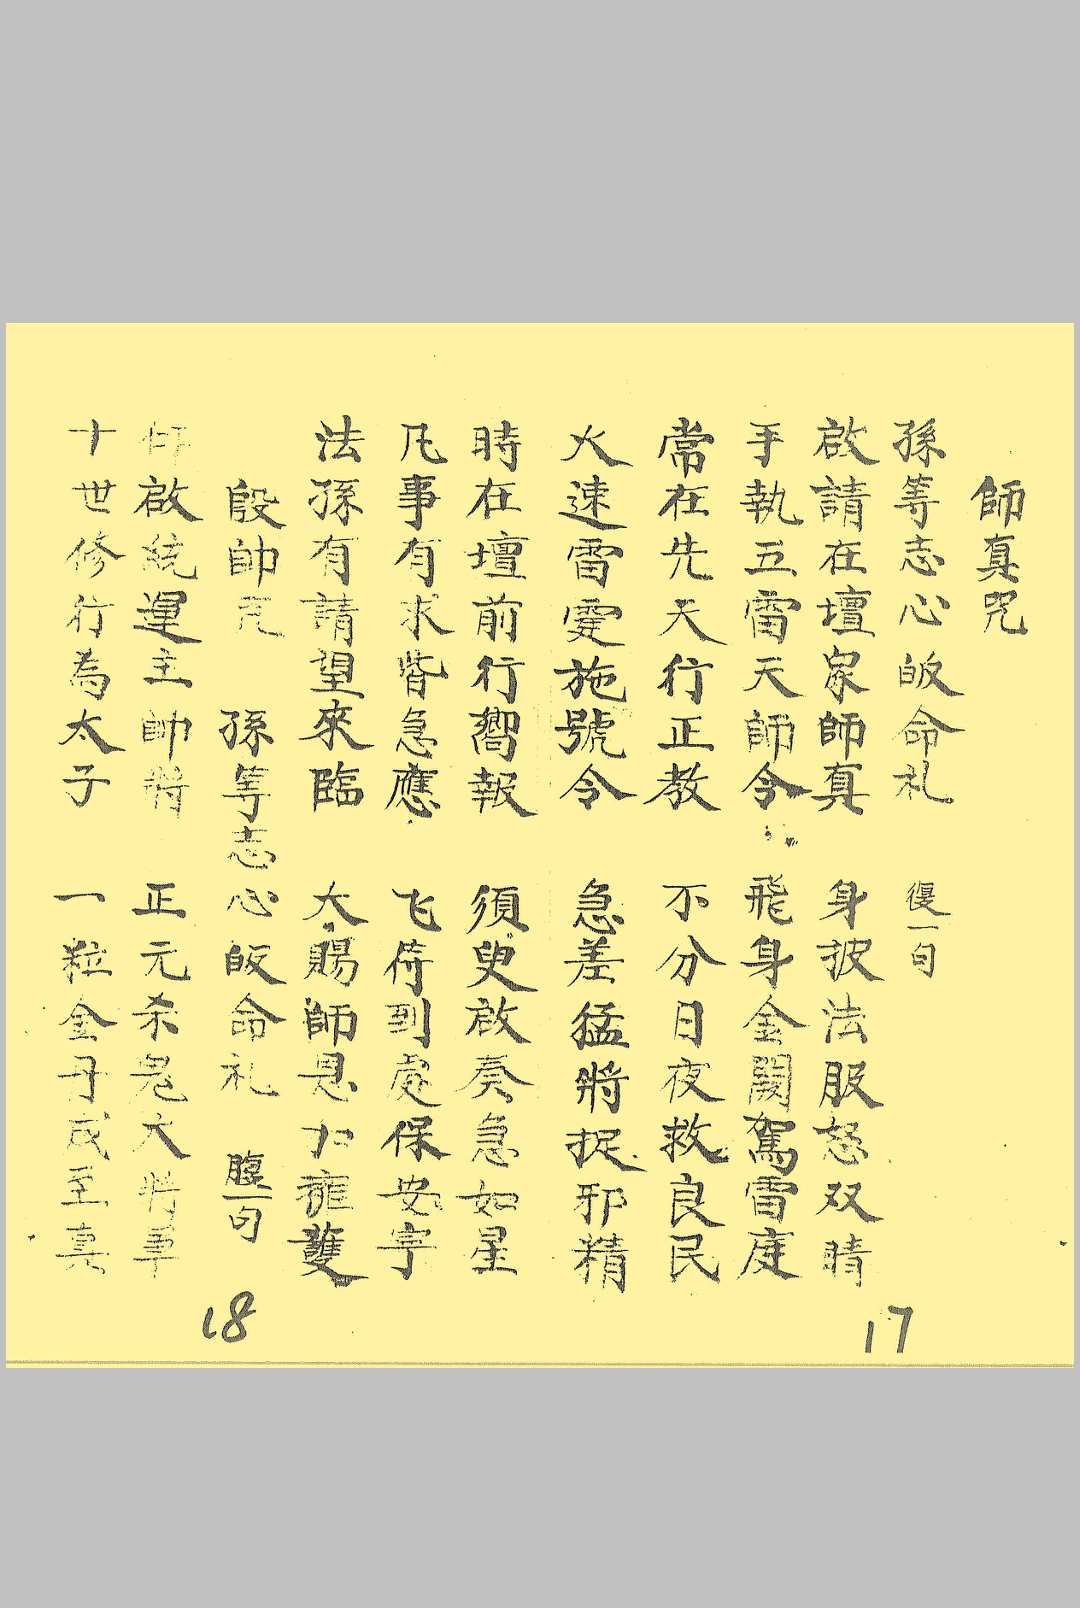 師真咒
孫等志心皈命礼 復一句
啟請在壇家師真 身披法服怒双睛
手執五雷天師令 飛身金闕駕雷庭
常在先天行正教 不分日夜救良民
火速雷霆施號令 急差猛將捉邪精
時在壇前行嚮報 須臾啟奏急如星
凡事有求皆急應 飞符到處保安宇
法孫有請望來臨 大賜師恩加擁護
殷帥咒 孫等志心皈命礼 復一句
仰啟統運主帥將 正元杀鬼大將軍
十世修行為太子 一粒金丹成至真
17
18